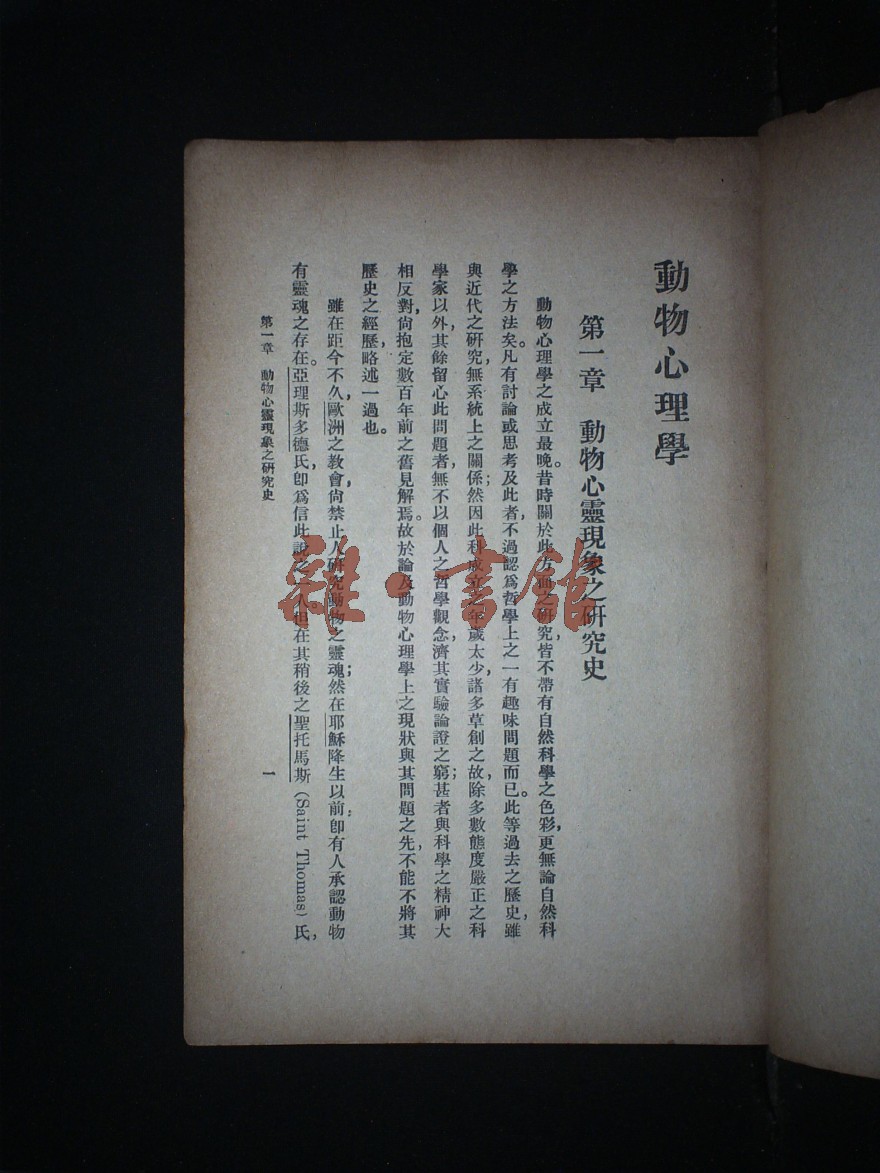 動物心理學
第一章 動物心靈現象之研究史
動物心理學之成立最晚。昔時關於此方面之研究,皆不帶有自然科學之色彩,更無論自然科
學之方法矣。凡有討論或思考及此者,不過認爲哲學上之一有趣味問題而已。此等過去之歷史,雖
與近代之研究,無系統上之關係;然因此科成立之年歲太少,諸多草創之故,除多數態度嚴正之科
學家以外,其餘留心此問題者,無不以個人之哲學觀念,濟其實驗論證之窮;甚者與科學之精神大
相反對,尙抱定數百年前之舊見解焉。故於論及動物心理學上之現狀與其問題之先,不能不將其
歷史之經歷略述一過也。
雖在距今不久,歐洲之教會,尙禁止人研究動物之靈魂;然在耶穌降生以前,卽有人承認動物
有靈魂之存在。亞理斯多德氏,卽爲信此說之一人。但在其稍後之聖托馬斯(Saint Thomas)氏,
第一章 動物心靈現象之研究史
一
雜·書館